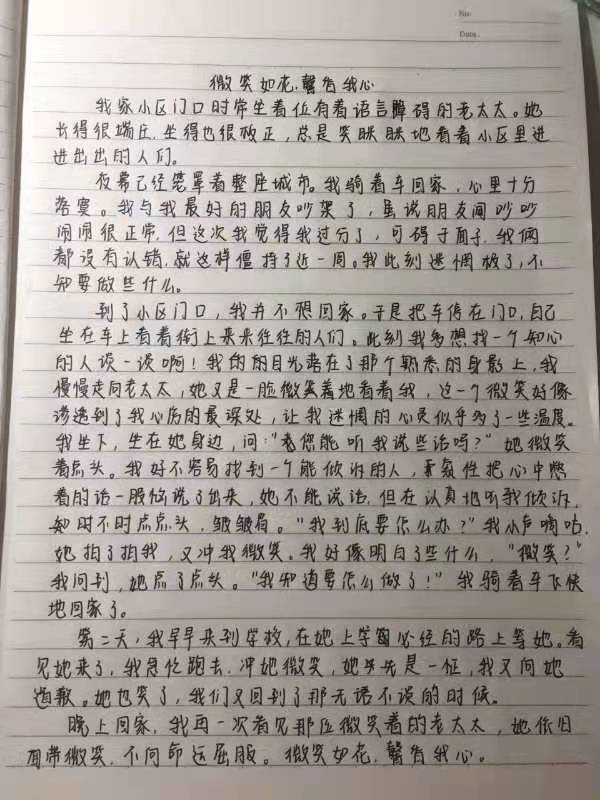 No.
Date.
微笑如花,馨香我心
我家小区门口时常坐着位有着语言障碍的老太太。她
长得很端庄,坐得也很板正,总是笑眯眯地看着小区里进
进出出的人们。
夜幕已经笼罩着整座城市。我骑着车回家,心里十分
落寞。我与我最好的朋友吵架了,虽说朋友间吵吵
闹闹很正常,但这次我觉得我过分了,可碍于面子,我俩
都没有认错,就这样僵持了近一周。我此刻迷惘极了,不
知要做些什么。
到了小区门口,我并不想回家。于是把车停在门口,自己
坐在车上看着街上来来往往的人们。此刻我多想找一个知心
的人谈一谈啊!我的的目光落在了那个熟悉的身影上,我
慢慢走向老太太,她又是一脸微笑着地看着我,这一个微笑好像
渗透到了我心房的最深处,让我迷惘的心灵似乎多了一些温度。
我坐下,坐在她身边,问:“老您能听我说些话吗?”她微笑
着点头。我好不容易找到一个能倾诉的人,索性把心中憋
着的话一股脑说了出来,她不能说话,但在认真地听我倾诉,
知时不时点点头,皱皱眉。“我到底要怎么办?”我小声嘀咕,
她拍了拍我,又冲我微笑。我好像明白了些什么,“微笑?”
我问到,她点了点头。“我知道要怎么做了!”我骑着车飞快
地回家了。
第二天,我早早来到学校,在她上学必经的路上等她。看
见她来了,我急忙跑去,冲她微笑,她先是一怔,我又向她
道歉。她也笑了,我们又回到了那无话不谈的时候。
晚上回家,我再一次看见那位微笑着的老太太,她依旧
面带微笑,不向命运屈服。微笑如花,馨香我心。